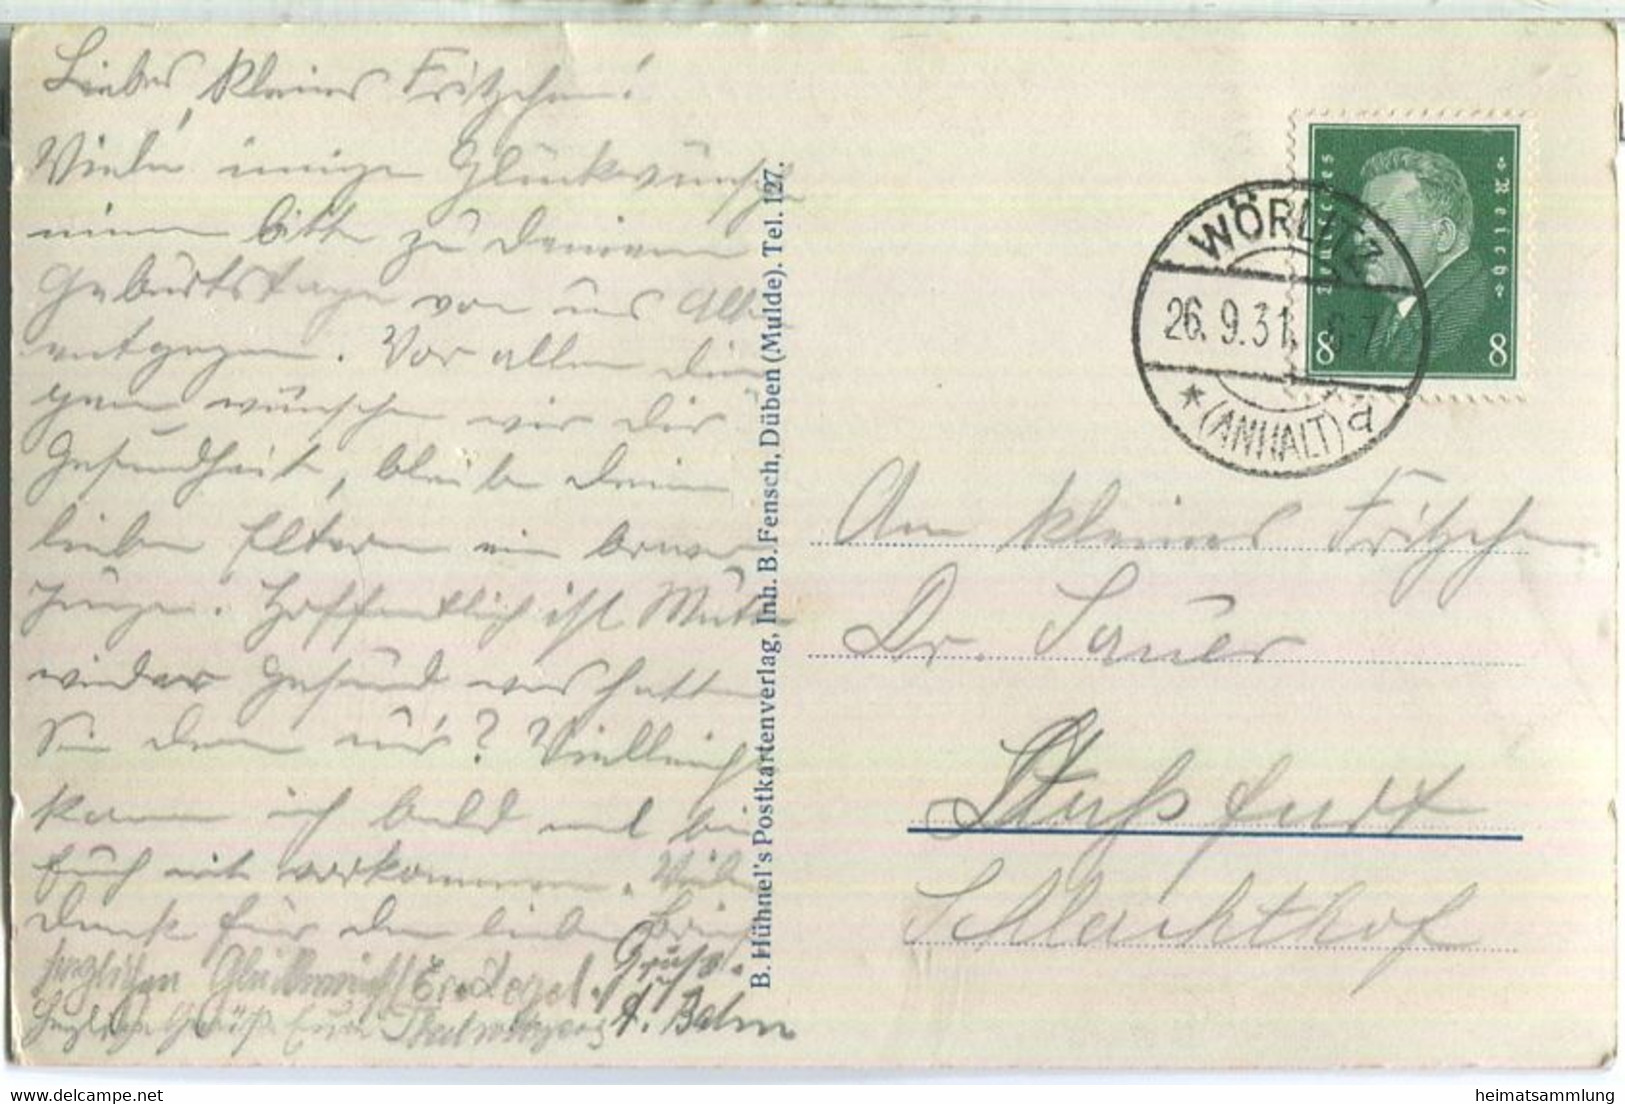 Liebes, kleines Fritzchen!
Viele innige Glückwünsche
nimm bitte zu Deinem
Geburtstage von uns Allen
entgegen. Vor allen Din
gen wünschen wir Dir
Gesundheit, bleibe Deinen
lieben Eltern ein braver
Junge. Hoffentlich ist Mutti
wieder gesund was hatten
Sie denn nur? Vielleicht
kann ich bald mal bei
Euch mit vorkommen. Vielen
Dank für den lieben Brief
herzlichen Glückwunsch
Gruß.
Herzliche Grüße Eure
A. Balm
B. Hühnel's Postkartenverlag, Inh. B. Fensch, Düben (Mulde). Tel. 127.
Deutsches Reich
8 8
WÖRLITZ
26. 9. 31. 6-7
* (ANHALT) d
An kleines Fritzchen
Dr. Sauer
Staßfurt
Schlachthof
heimatsammlung